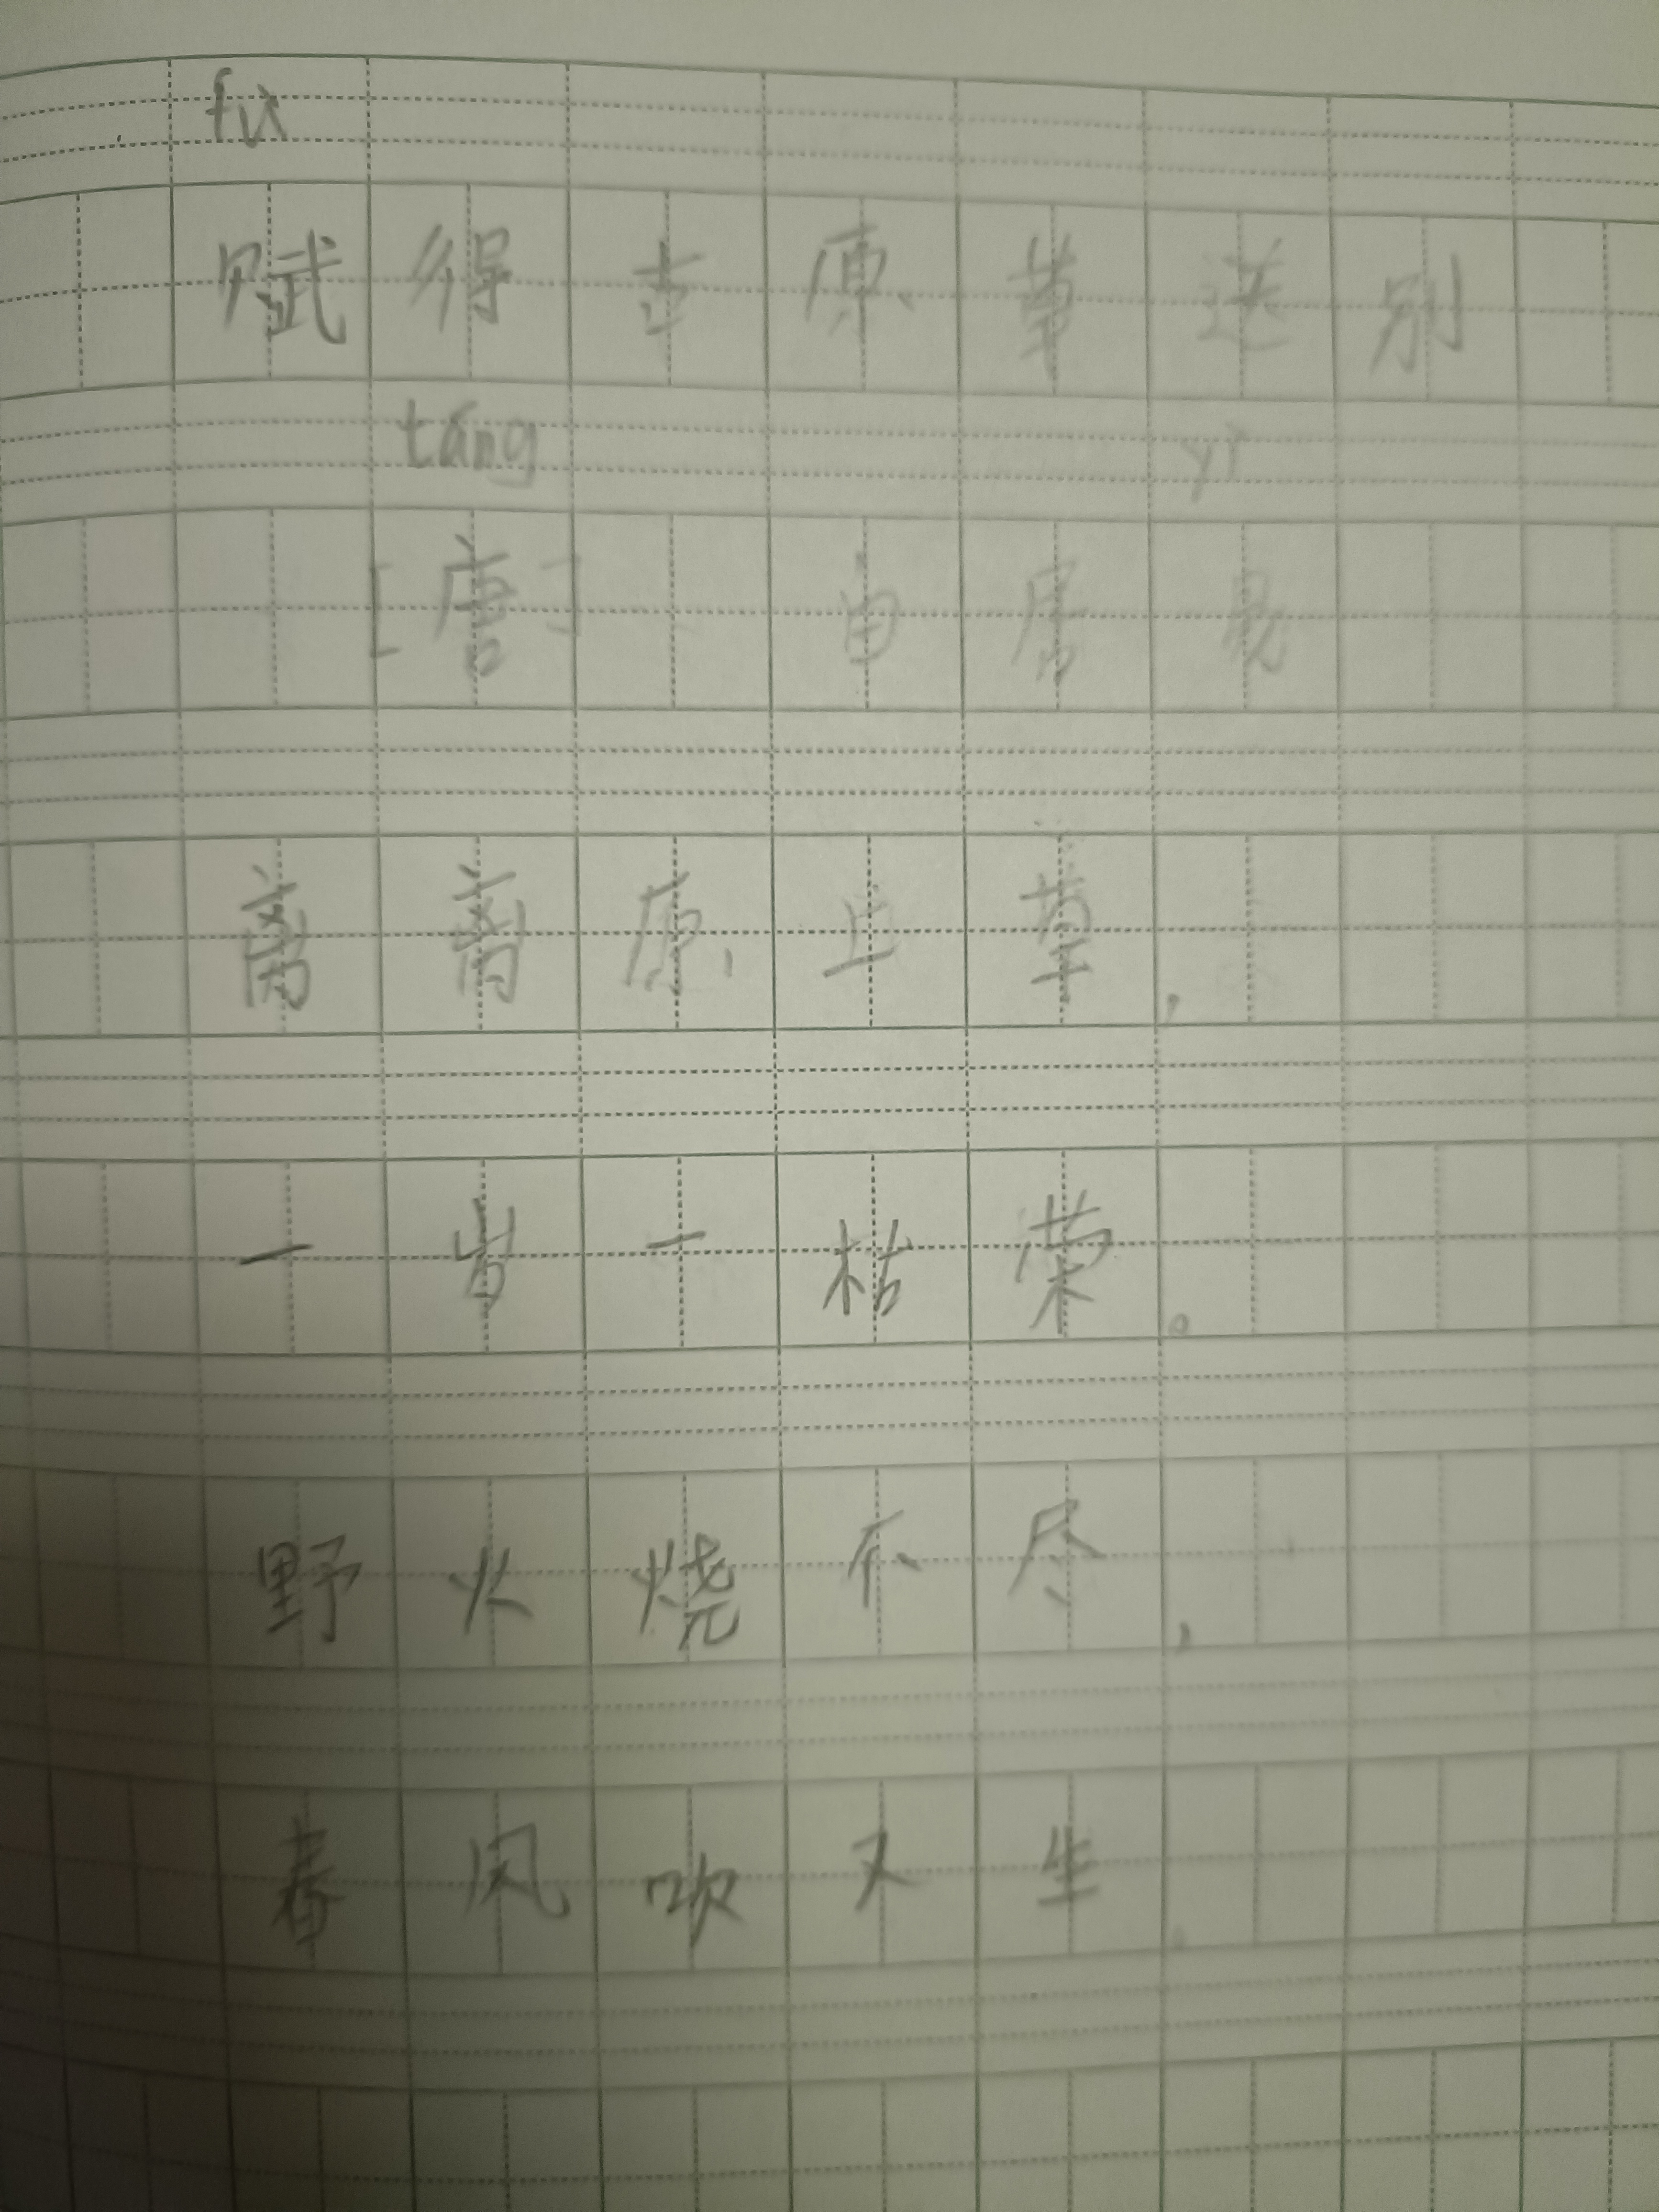 fù
赋得古原草送别
táng yì
[唐] 白居易
离离原上草，
一岁一枯荣。
野火烧不尽，
春风吹又生。